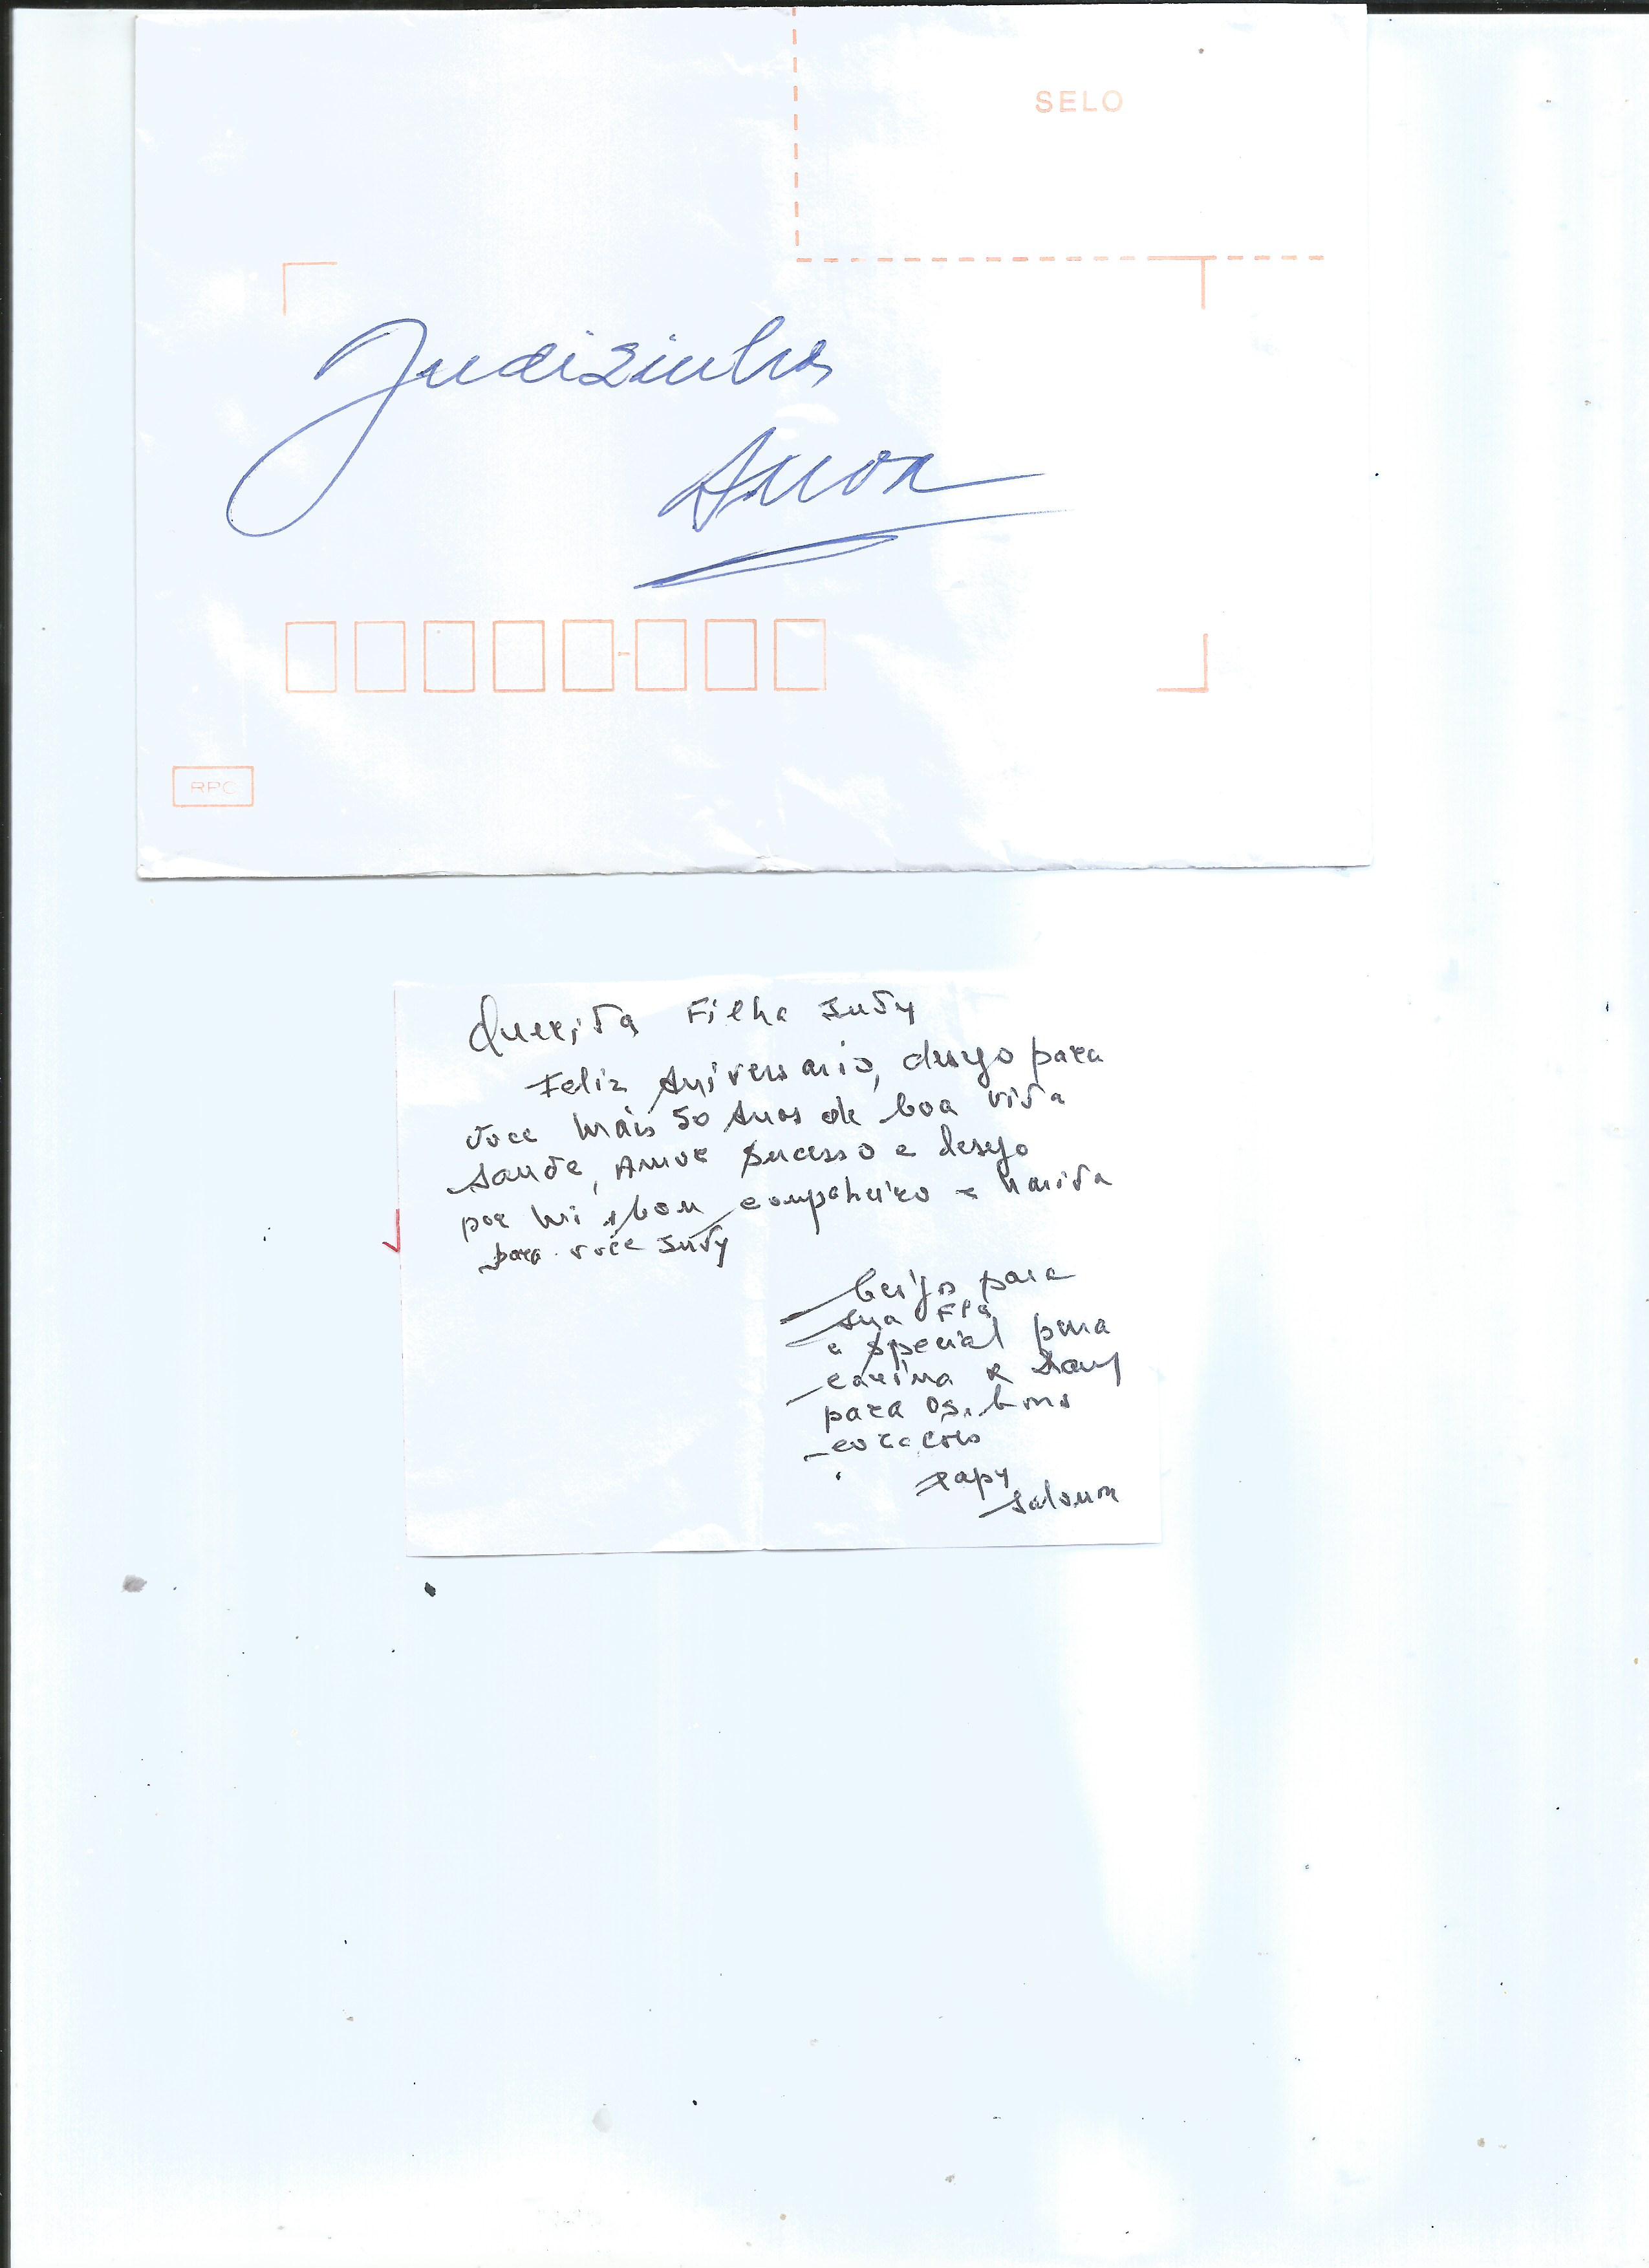 SELO
Judizinha
Amor
RPC
Querida Filha Judy
Feliz Aniversario, desejo para
voce mais 50 Anos de boa vida
saude, Amor sucesso e desejo
por mi bom companheiro e marido
para voce Judy
beijo para
sua
e special para
carina e
para os bons
corações
Papy
Salomon